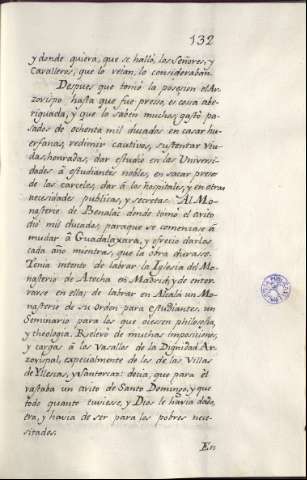 132
y donde quiera, que se halló, los Señores, y
Cavalleros, que lo veían, lo consideraban.
Despues que tomó la posesion el Ar-
zovispo hasta que fue preso, es cosa abe-
riguada, y que la saben muchos, gastó pa-
sados de ochenta mil ducados en casar hu-
erfanas, redimir cautivos, sustentar Viu-
das honradas, dar estudio en las Universi-
dades à estudiantes nobles, en sacar presos
de las carceles, dar à los hospitales, y en otras
necesidades publicas, y secretas. Al Mo-
nasterio de Benalac donde tomó el avito
dió mil ducados, para que se comenzase à
mudar à Guadalaxara, y ofreció darlos
cada año mientras, que la obra durase.
Tenia intento de labrar la Iglesia del Mo-
nasterio de Atocha en Madrid, y de enter-
rarse en ella; de labrar en Alcalá un Mo-
nasterio de su orden para estudiantes, un
Seminario para los que oiesen philosofia,
y theologia. Relevó de muchas imposiciones,
y cargas à los Vasallos de la Dignidad Ar-
zovispal, especialmente de los de las Villas
de Yllescas, y decia, que para èl
vastaba un avito de Santo Domingo, y que
todo quanto tuviese, y Dios le havia dado,
era, y havia de ser para los pobres nece-
sitados.
En